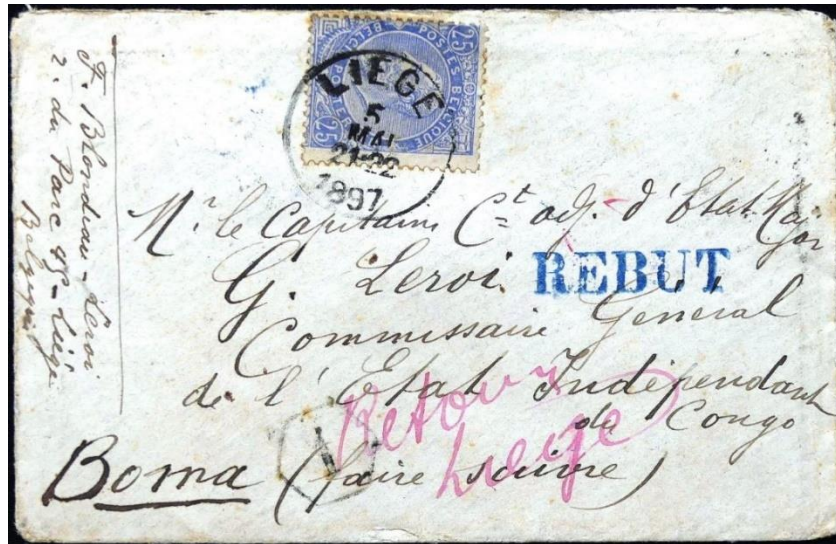 F. Blondiau-Leroi
r. du Parc 45-Liége
Belgique
25 POSTES BELGIQUE 25
BELGIE POSTERIJEN
LIEGE
5
MAI
21-22
1897
Mr. le Capitaine Ct adj. d'Etat Major
G. Leroi
REBUT
Commissaire Général
de l'Etat Indépendant
du Congo
Retour
Liége
Boma (faire suivre)